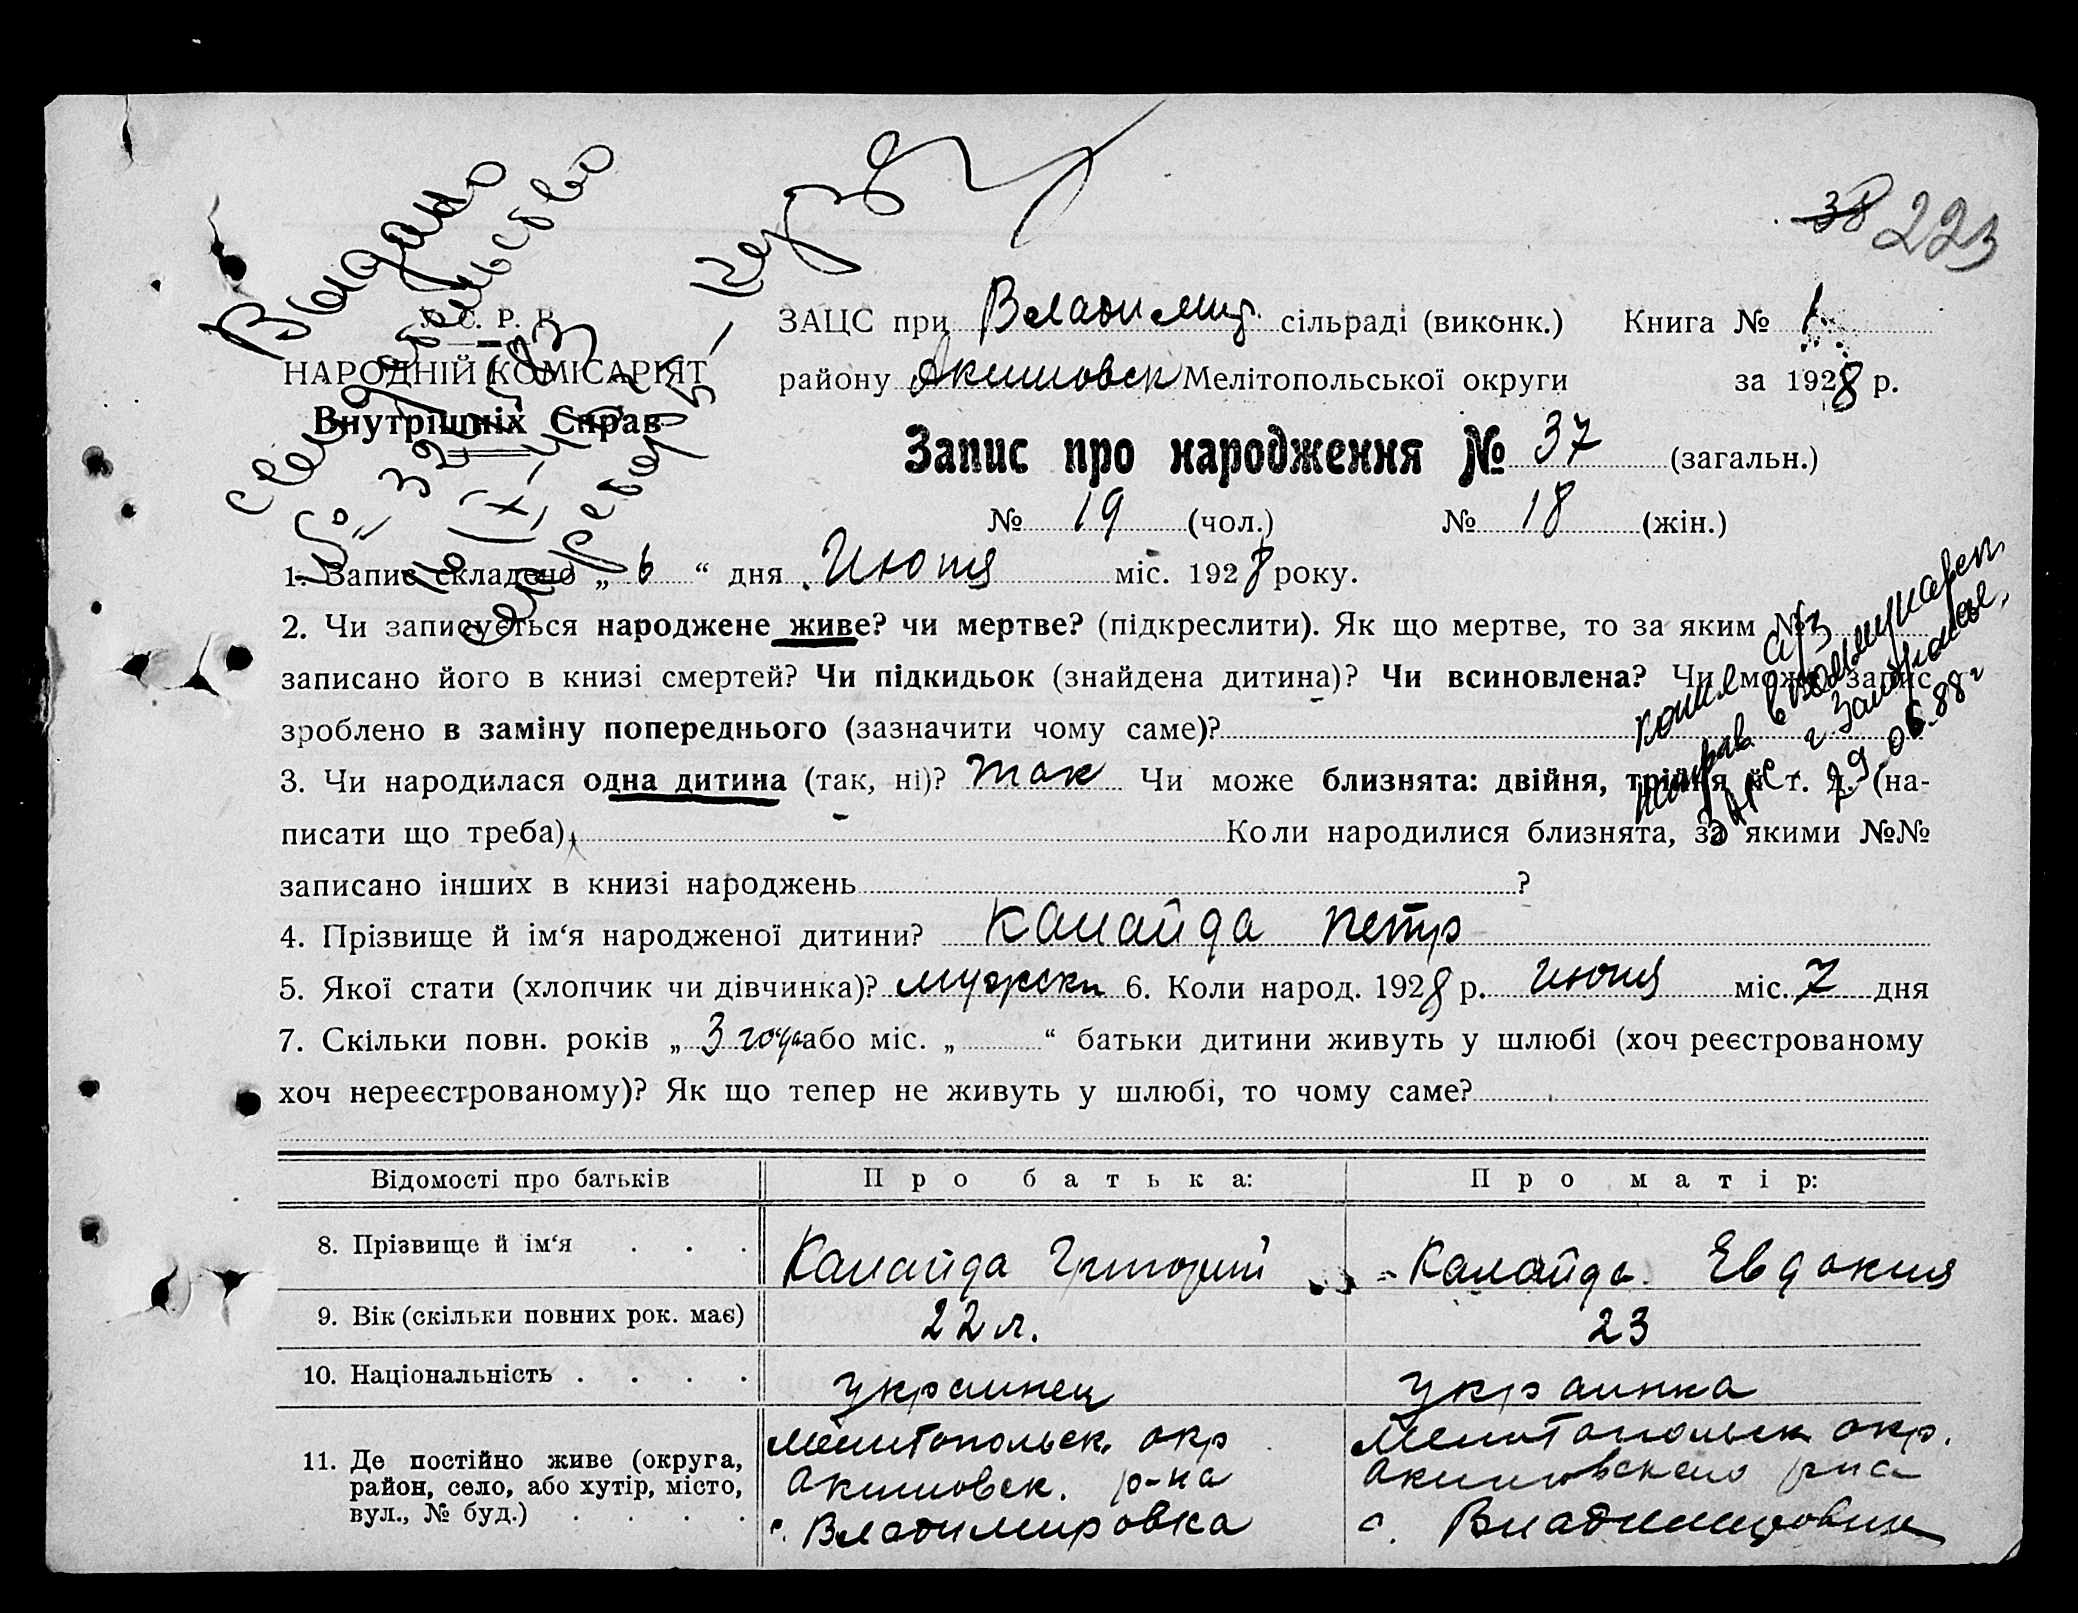 38 223
Видано
свидетельство
У. С. Р. Р.
НАРОДНІЙ КОМІСАРІЯТ
Внутрішніх Справ
Секретарь
ЗАЦС при Владимир. сільраді (виконк.) Книга № 1
району Акимовск Мелітопольської округи за 1928 р.
Запис про народження № 37 (загальн.)
№ 19 (чол.) № 18 (жін.)
1. Запис складено „ 6 “ дня Июня міс. 1928 року.
2. Чи записується народжене живе? чи мертве? (підкреслити). Як що мертве, то за яким №
записано його в книзі смертей? Чи підкидьок (знайдена дитина)? Чи всиновлена? Чи може запис
зроблено в заміну попереднього (зазначити чому саме)?
копия а/з
направ. в
ЗАГС г
29.06.88 г
3. Чи народилася одна дитина (так, ні)? так Чи може близнята: двійня, трійня й т. д. (на-
писати що треба) Коли народилися близнята, за якими №№
записано інших в книзі народжень ?
4. Прізвище й ім‘я народженої дитини? Калайда Петр
5. Якої стати (хлопчик чи дівчинка)? мужски 6. Коли народ. 1928 р. июня міс. 7 дня
7. Скільки повн. років „ 3 года або міс. „ “ батьки дитини живуть у шлюбі (хоч реєстрованому
хоч нереєстрованому)? Як що тепер не живуть у шлюбі, то чому саме?
Відомості про батьків Про батька: Про матір:
8. Прізвище й ім‘я . . . Калайда Григорий Калайда Евдокия
9. Вік (скільки повних рок. має) 22 л. 23
10. Національність . . . . украинец украинка
11. Де постійно живе (округа, Мелитопольск. окр Мелитопольск окр.
район, село, або хутір, місто, Акимовск. р-на Акимовского р-на
вул., № буд.) . . . . с. Владимировка с. Владимировка